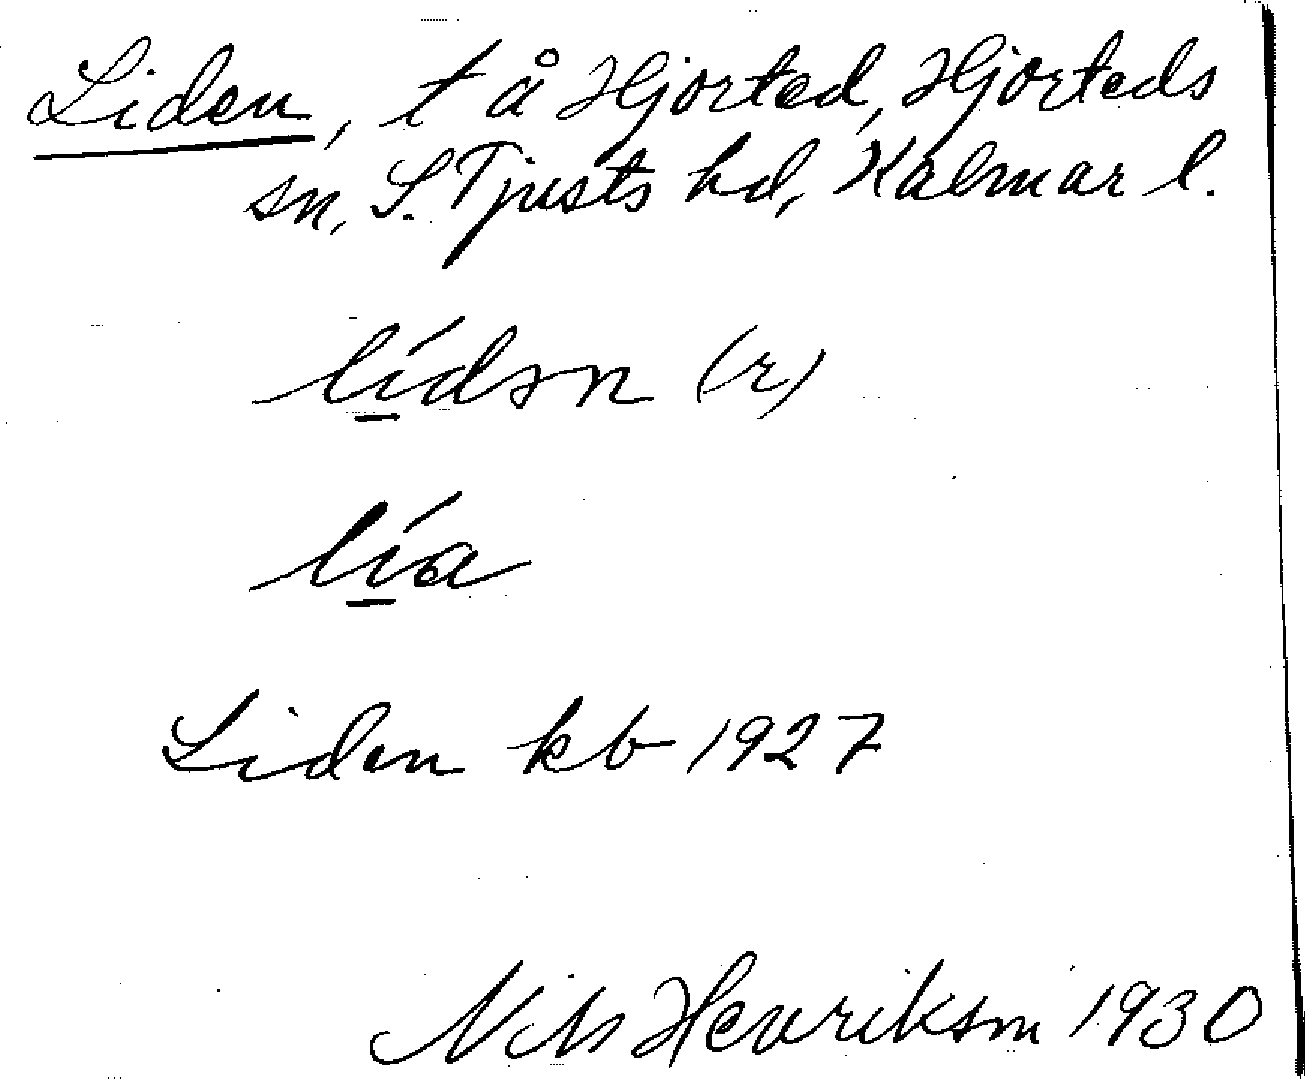 Liden, t å Hjorted, Hjorteds
sn, S. Tjusts hd, Kalmar l.
lídən (r)
lía
Liden kb 1927
Nils Henriksson 1930